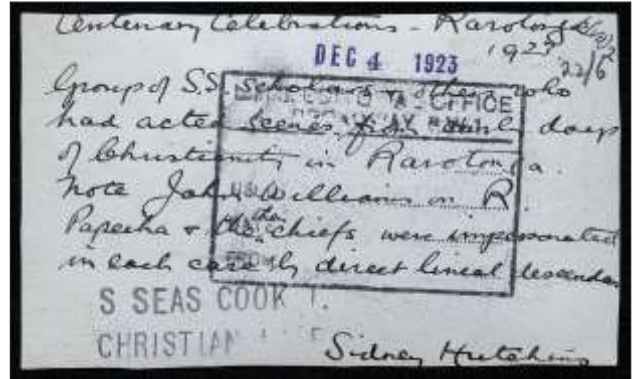 Centenary Celebrations - Rarotonga
1923
22/6
DEC 4 1923
Group of S.S. Scholars & others who
had acted scenes from early days
of Christianity in Rarotonga.
Note John Williams on R.
Papeeha & the other chiefs were impersonated
in each case by direct lineal descendan
S SEAS COOK I.
CHRISTIAN LIFE
Sidney Hutchins